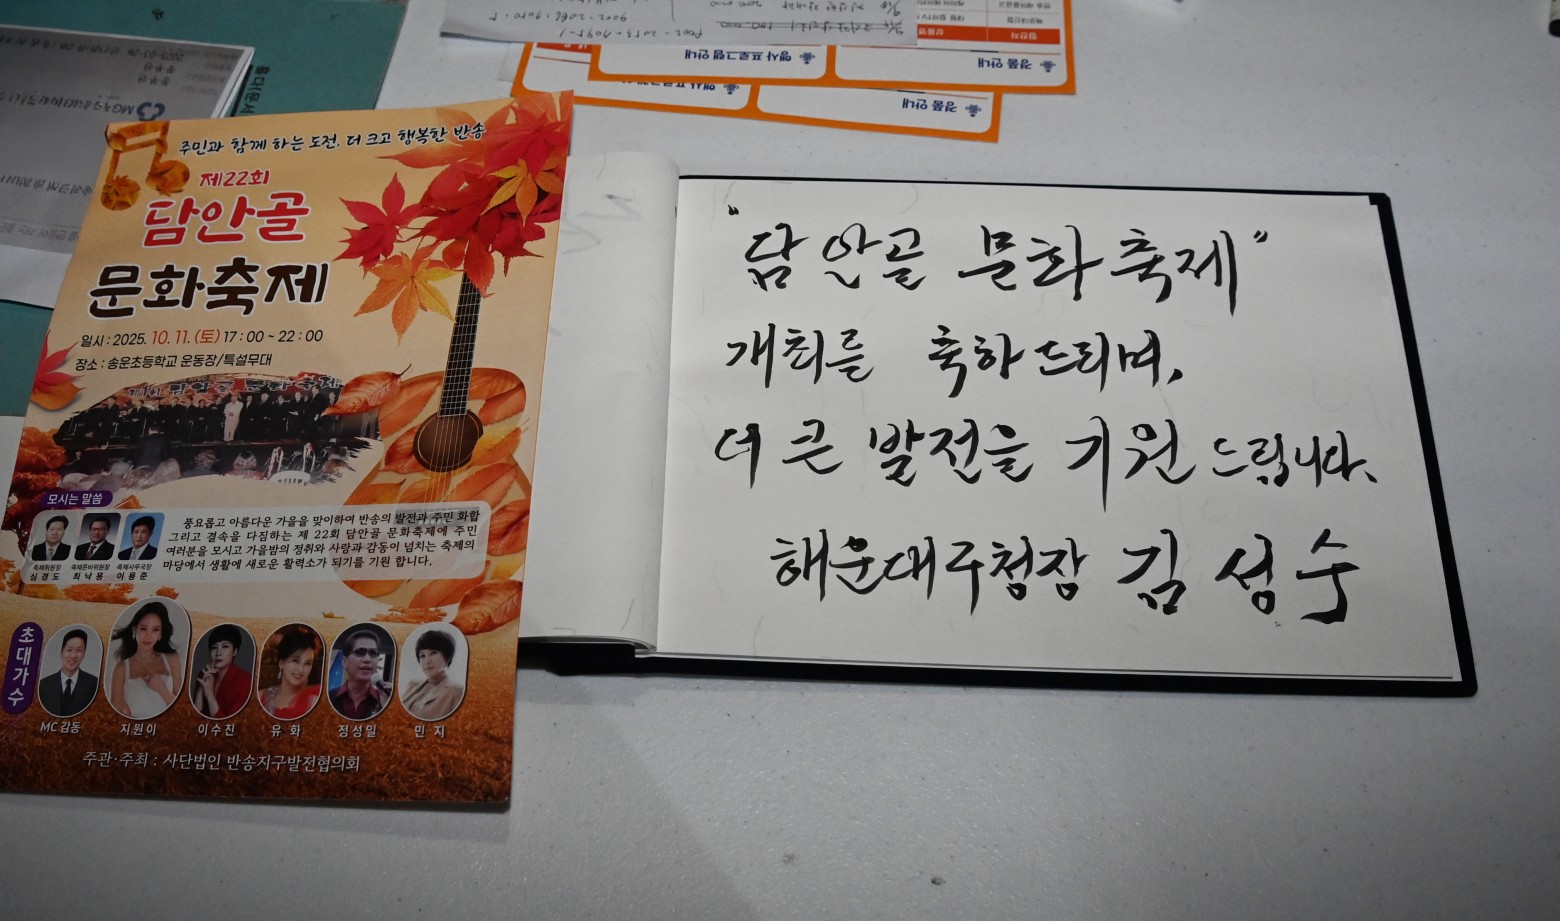 주민과 함께 하는 도전, 더 크고 행복한 반송
제22회
담안골
문화축제
일시 : 2025. 10. 11. (토) 17 : 00 ~ 22 : 00
장소 : 송운초등학교 운동장/특설무대
담안골 문화축제
모시는 말씀
풍요롭고 아름다운 가을을 맞이하여 반송의 발전과 주민 화합
그리고 결속을 다짐하는 제 22회 담안골 문화축제에 주민
여러분을 모시고 가을밤의 정취와 사랑과 감동이 넘치는 축제의
마당에서 생활에 새로운 활력소가 되기를 기원 합니다.
축제위원장 축제준비위원장 축제사무국장
심경도 최낙용 이용준
초대가수
MC 감동 지원이 이수진 유화 정성일 민지
주관·주최 : 사단법인 반송지구발전협의회
"담안골 문화축제"
개최를 축하드리며,
더 큰 발전을 기원드립니다.
해운대구청장 김성수
행사 프로그램 안내
경품 안내
경품 안내
MG새마을금고